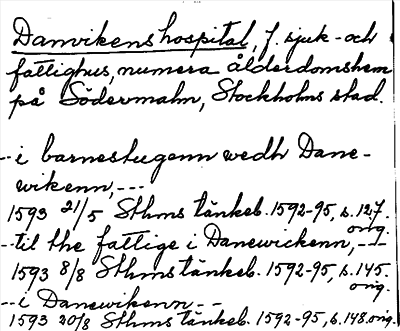 Danvikens hospital, f. sjuk- och
fattighus, numera ålderdomshem
på Södermalm, Stockholms stad.
--i barnestugenn wedh Dane-
wikenn,---
1593 21/5 Sthms tänkeb. 1592-95, s. 127.
orig.
--til the fattige i Danewickenn,---
1593 8/8 Sthms tänkeb. 1592-95, s. 145.
orig.
--i Danewikenn--
1593 20/8 Sthms tänkeb. 1592-95, s. 148. orig.